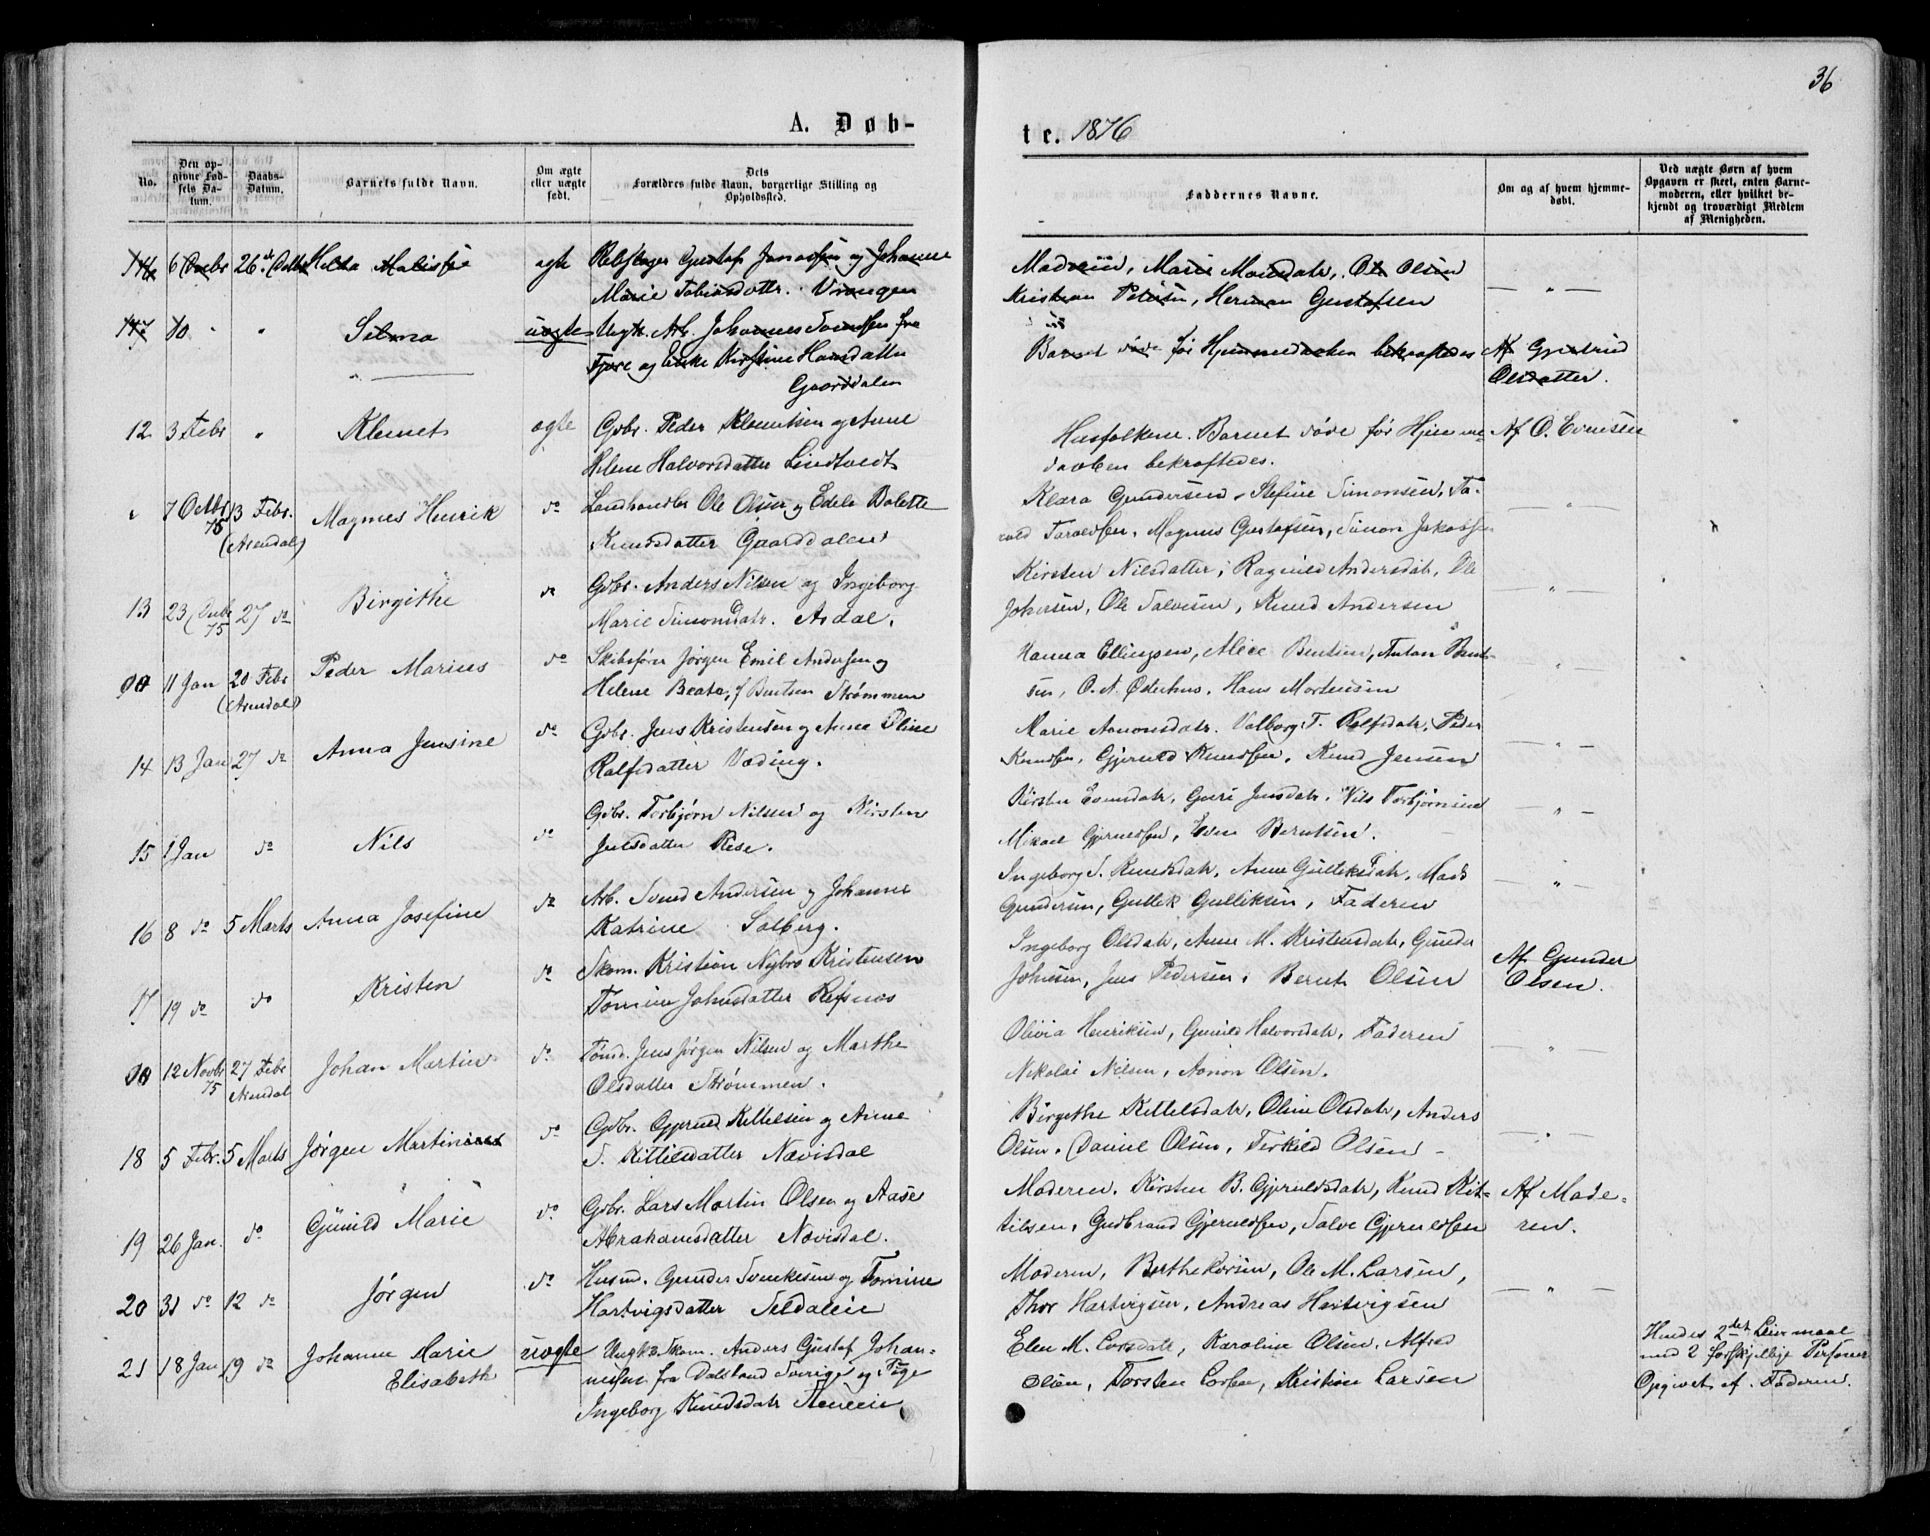 36
A. Døb-
te. 1876
No.
Den op-
givne Fød-
sels Da-
tum.
Daabs-
Datum.
Barnets fulde Navn.
Om ægte
eller uægte
født.
Dets
Forældres fulde Navn, borgerlige Stilling og
Opholdssted.
Faddernes Navne.
Om og af hvem hjemme-
døbt.
Ved uægte Børn af hvem
Opgaven er skeet, enten Barne-
moderen, eller hvilket be-
kjendt og troværdigt Medlem
af Menigheden.
6 26de ægte Gustaf Jonassen og Johanne
Marie Tobiasdatter. Vrengen
Marie Ole Olsen
Kristian Petersen, Herman Gustafsen
— " —
10 " " Selma uægte Ungk. Arb. Johannes Svendsen fra
Fjære og Enke Kirstine Hansdatter
Gaarddalen
Barnet døde før Hjemmedaaben bekræftedes Af Gjertrud
Olsdatter.
12 3 Febr " Klemet ægte Gdbr. Peder Klemetsen og Anne
Helene Halvorsdatter Lindtvedt
Husfolkene. Barnet døde før Hjemme- Af O. Evensen
daaben bekræftedes.
7 Octbr 75 13 Febr. (Arendal) Magnus Henrik do Landhandler Ole Olsen og Edele Bolette
Knudsdatter Gaarddalen
Klara Gundersen, Stefine Simonsen, Ta-
rald Taraldsen, Magnus Gustafsen, Simon Jakobsen
— " —
13 23 Decbr 75 27 do Birgithe do Gdbr. Anders Nilsen og Ingeborg
Marie Simonsdatr. Asdal.
Kirsten Nilsdatter, Ragnild Andersdat, Ole
Johnsen, Ole Salvesen, Knud Andersen
— " —
00 11 Jan 20 Febr (Arendal) Peder Marius do Skibsfører Jørgen Emil Andersen og
Helene Beate, f Bentsen Strømmen
Hanna Ellingsen, Alice Bentsen, Anton Bent-
sen, O. A. Østerhus, Hans Mortensen
"
14 13 Jan 27 do Anna Jensine do Gdbr. Jens Kristensen og Anne Oline
Rolfsdatter Væding.
Marie Aanonsdatr. Valborg T. Rolfsdatr, Peder
Knudsen, Gjeruld Knudsen, Knud Jensen
— " —
15 1 Jan do Nils do Gdbr. Torbjørn Nilsen og Kirsten
Julsdatter Rise.
Kirsten Evensdatr, Guri Jensdatr, Nils Torbjørnsen
Mikael Gjeruldsen, Even Berntsen.
— " —
16 8 do 5 Marts Anna Josefine do Arb. Svend Andersen og Johanne
Katrine Solberg.
Ingeborg S. Knudsdatr, Anne Gulleksdatr, Mads
Gundersen, Gullek Gulliksen, Faderen
— " —
17 19 do do Kristen do Skom. Kristian Nybro Kristensen
Tomine Johnsdatter Refsnæs
Ingeborg Olsdatr, Anne M. Kristensdatr, Gunder
Johnsen, Jens Pedersen, Bernt Olsen
Af Gunder
Olsen.
00 12 Novbr 75 27 Febr Arendal Johan Martin do Tømd. Jens Jørgen Nilsen og Marthe
Olsdatter Strømmen.
Olivia Henriksen, Gunild Halvorsdatr, Faderen
Nikolai Nilsen, Aanon Olsen.
— " —
18 5 Febr. 5 Marts Jørgen Martinius do Gdbr. Gjeruld Kittelsen og Anne
S. Kittilsdatter Nævisdal
Birgithe Kittelsdatr, Oline Olsdatr, Anders
Olsen, Daniel Olsen, Terkild Olsen
— " —
19 26 Jan. do Gunild Marie do Gdbr. Lars Martin Olsen og Aase
Abrahamsdatter Nævisdal.
Moderen, Kirsten B. Gjeruldsdatr, Knud Kit-
tilsen, Gudbrand Gjeruldsen, Salve Gjeruldsen
Af Mode-
ren.
20 31 do 12 do Jørgen do Husmd. Gunder Svenkesen og Tomine
Hartvigsdatter Seldalen
Moderen, Berthe Larsen, Ole M. Larsen,
Thor Hartvigsen, Andreas Hartvigsen
— " —
21 18 Jan 19 do Johanne Marie
Elisabeth
uægte Ungk. Skom. Anders Gustaf Johan-
nesen fra Dalsland Sverige og Pige
Ingeborg Knudsdatr
Elen M. Larsdatr, Karoline Olsen, Alfred
Olsen, Torsten Larsen, Kristian Larsen
Hendes 2det Leiermaal
med 2 forskjellige Personer
Opgivet af Faderen.